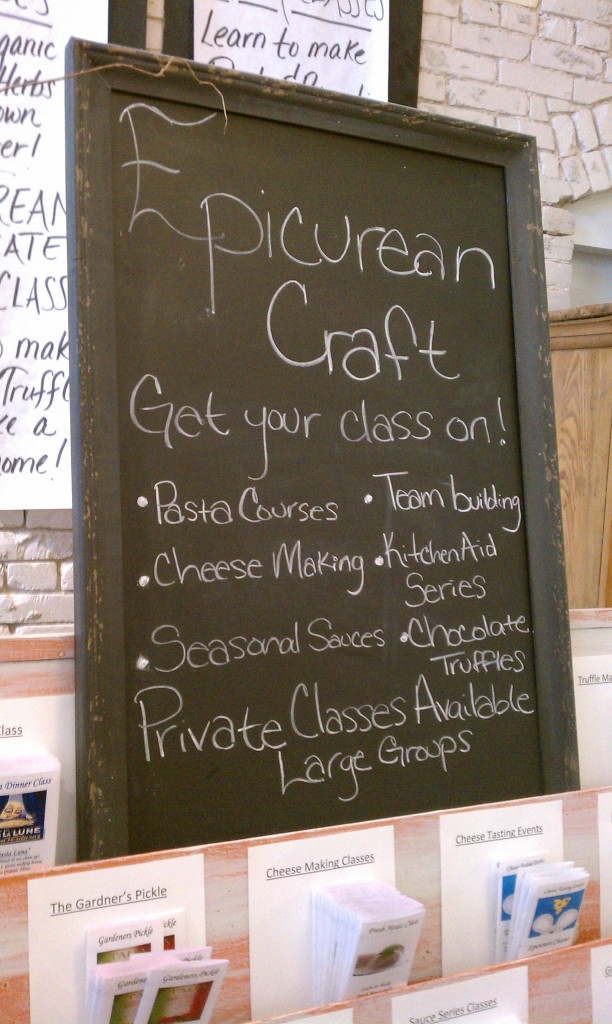 Learn to make
ganic
Herbs
own
er!
REAN
ATE
CLASS
mak
Truffl
ke a
ome!
Epicurean
Craft
Get your class on!
• Pasta Courses • Team building
• Cheese Making • KitchenAid
Series
• Seasonal Sauces • Chocolate
Truffles
Private Classes Available
Large Groups
Truffle Ma
Class
a Dinner Class
The Gardner's Pickle
Gardeners Pickle
Pickle
Gardeners Pickle
Cheese Making Classes
Cheese Tasting Events
Sauce Series Classes